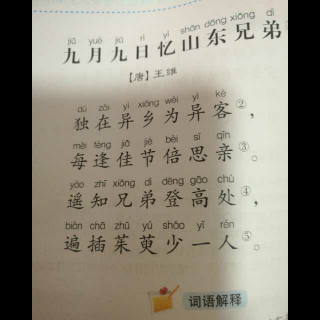 jiǔ yuè jiǔ rì yì shān dōng xiōng dì
九月九日忆山东兄弟
【唐】王维
dú zài yì xiāng wéi yì kè
独在异乡为异客②，
měi féng jiā jié bèi sī qīn
每逢佳节倍思亲③。
yáo zhī xiōng dì dēng gāo chù
遥知兄弟登高处④，
biàn chā zhū yú shǎo yī rén
遍插茱萸少一人⑤。
词语解释